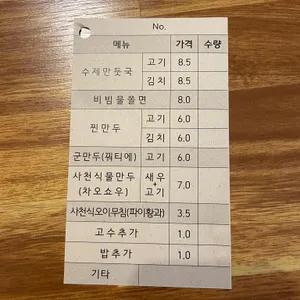 No.
메뉴 가격 수량
수제만둣국 고기 8.5
김치 8.5
비빔물쫄면 8.0
찐만두 고기 6.0
김치 6.0
군만두(꿔티에) 고기 6.0
사천식물만두 새우
(차오쇼우) + 고기 7.0
사천식오이무침(파이황과) 3.5
고수추가 1.0
밥추가 1.0
기타